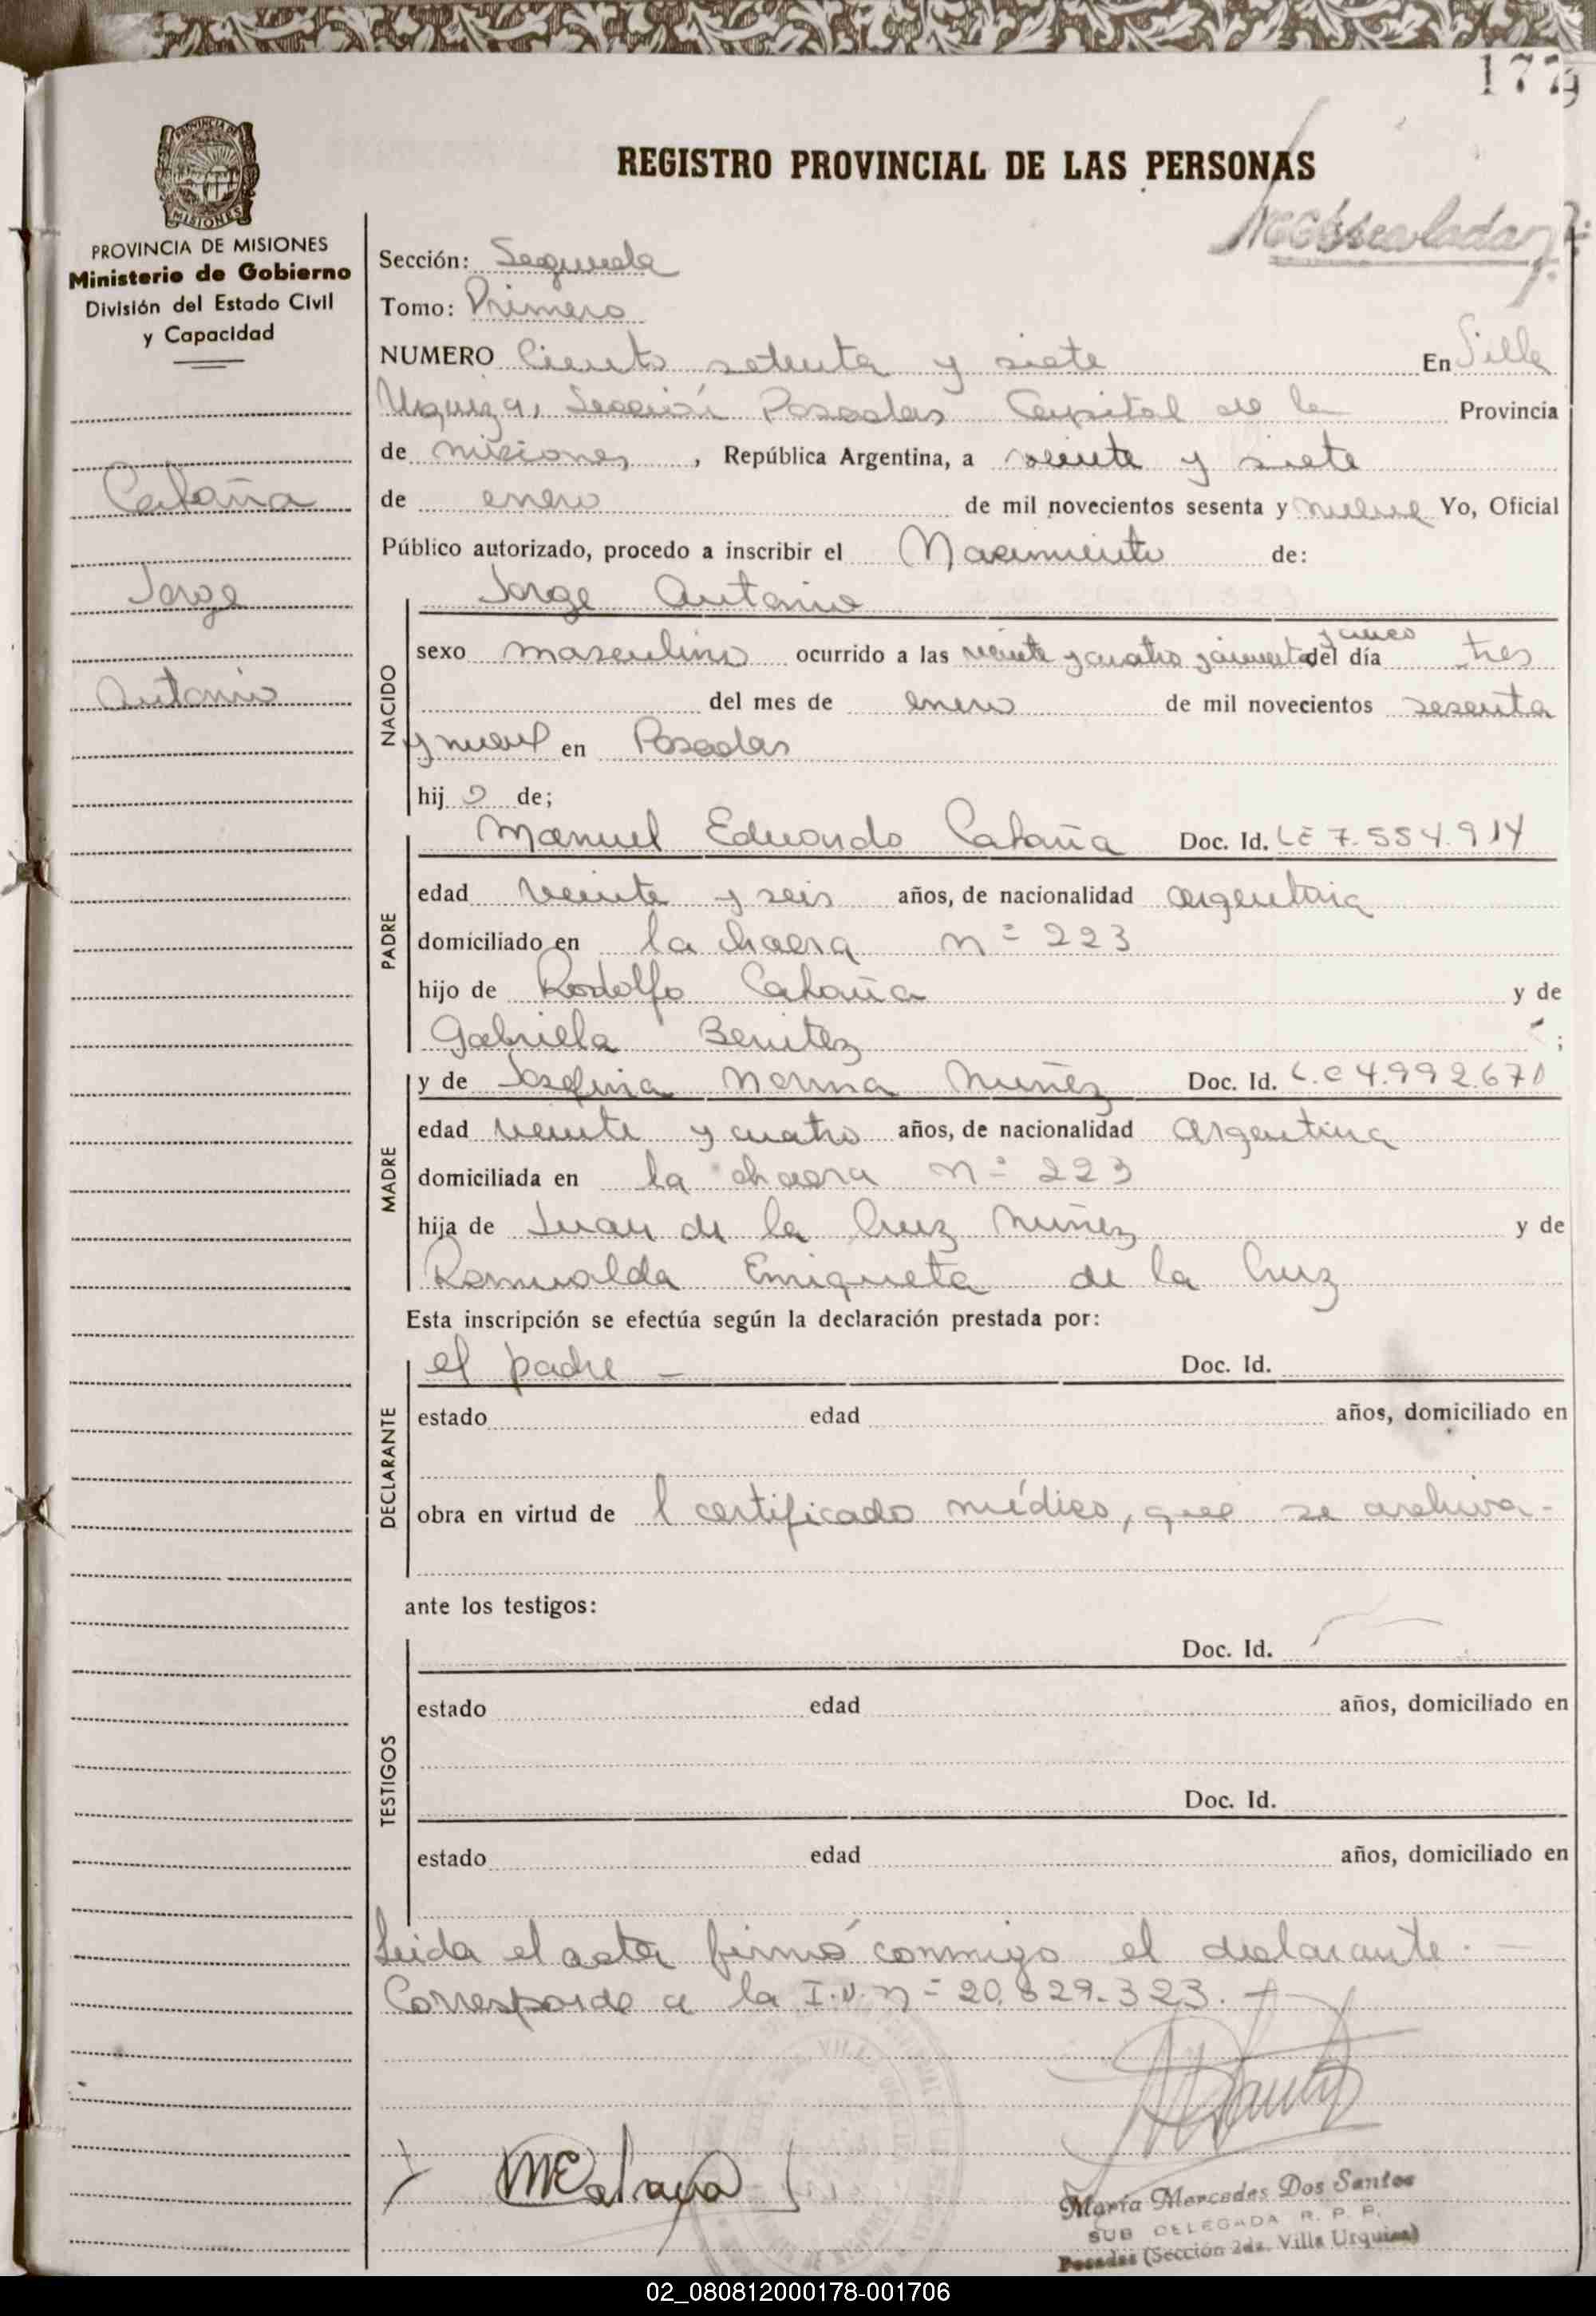 177
REGISTRO PROVINCIAL DE LAS PERSONAS
MISIONES
PROVINCIA DE MISIONES
Ministerio de Gobierno
División del Estado Civil
y Capacidad
Cataña
Jorge
Antonio
Sección: Segunda
Tomo: Primero
NUMERO Ciento setenta y siete En Villa
Urquiza, Sección Posadas Capital de la Provincia
de misiones, República Argentina, a veinte y siete
de enero de mil novecientos sesenta y nueve Yo, Oficial
Público autorizado, procedo a inscribir el Nacimiento de:
Jorge Antonio
NACIDO
y cinco
sexo masculino ocurrido a las veinte y cuatro y cincuenta del día tres
del mes de enero de mil novecientos sesenta
y nueve en Posadas
hijo de;
PADRE
Manuel Eduardo Cataña Doc. Id. LE 7.554.914
edad veinte y seis años, de nacionalidad argentina
domiciliado en la chacra n= 223
hijo de Rodolfo Cataña y de
Gabriela Benitez ;
MADRE
y de Josefina Norma Nuñez Doc. Id. L.C 4.992.670
edad veinte y cuatro años, de nacionalidad argentina
domiciliada en la chacra n= 223
hija de Juan de la Cruz Nuñez y de
Romualda Enriqueta de la Cruz
Esta inscripción se efectúa según la declaración prestada por:
DECLARANTE
el padre - Doc. Id.
estado edad años, domiciliado en
obra en virtud de l certificado médico, que se archiva-
ante los testigos:
TESTIGOS
Doc. Id.
estado edad años, domiciliado en
Doc. Id.
estado edad años, domiciliado en
Leida el acta firmó conmigo el declarante.-
Corresponde a la I.N. n= 20.829.323.-
MCataña
María Mercedes Dos Santos
SUB DELEGADA R. P. P.
Posadas (Sección 2da. Villa Urquiza)
02_080812000178-001706